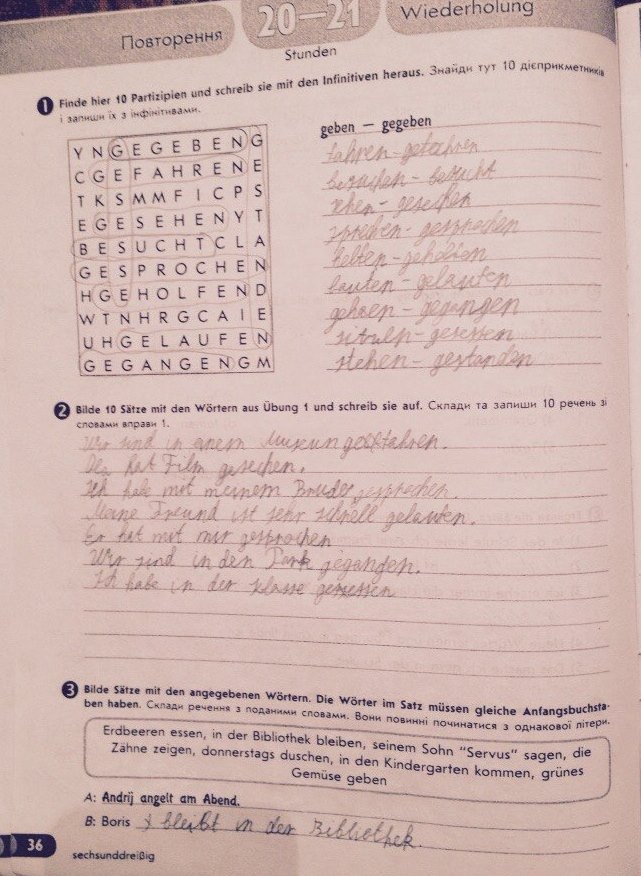 Повторення
20—21
Stunden
Wiederholung
1 Finde hier 10 Partizipien und schreib sie mit den Infinitiven heraus. Знайди тут 10 дієприкметників
і запиши їх з інфінітивами.
Y N G E G E B E N G
C G E F A H R E N E
T K S M M F I C P S
E G E S E H E N Y T
B E S U C H T C L A
G E S P R O C H E N
H G E H O L F E N D
W T N H R G C A I E
U H G E L A U F E N
G E G A N G E N G M
geben — gegeben
fahren - gefahren
besuchen - besucht
sehen - gesechen
- gesprochen
helfen - geholfen
laufen - gelaufen
gehen - gegangen
- gesessen
stehen - gestanden
2 Bilde 10 Sätze mit den Wörtern aus Übung 1 und schreib sie auf. Склади та запиши 10 речень зі
словами вправи 1.
Wir sind in
hat Film gesechen.
Ich habe mit meinem Bruder gesprochen.
Meine Freund ist sehr schnell gelaufen.
Er hat mit mir gesprochen
Wir sind in den Park gegangen.
Ich habe in der Klasse gesessen
3 Bilde Sätze mit den angegebenen Wörtern. Die Wörter im Satz müssen gleiche Anfangsbuchsta-
ben haben. Склади речення з поданими словами. Вони повинні починатися з однакової літери.
Erdbeeren essen, in der Bibliothek bleiben, seinem Sohn "Servus" sagen, die
Zähne zeigen, donnerstags duschen, in den Kindergarten kommen, grünes
Gemüse geben
A: Andrij angelt am Abend.
B: Boris bleibt in der Bibliothek.
36
sechsunddreißig